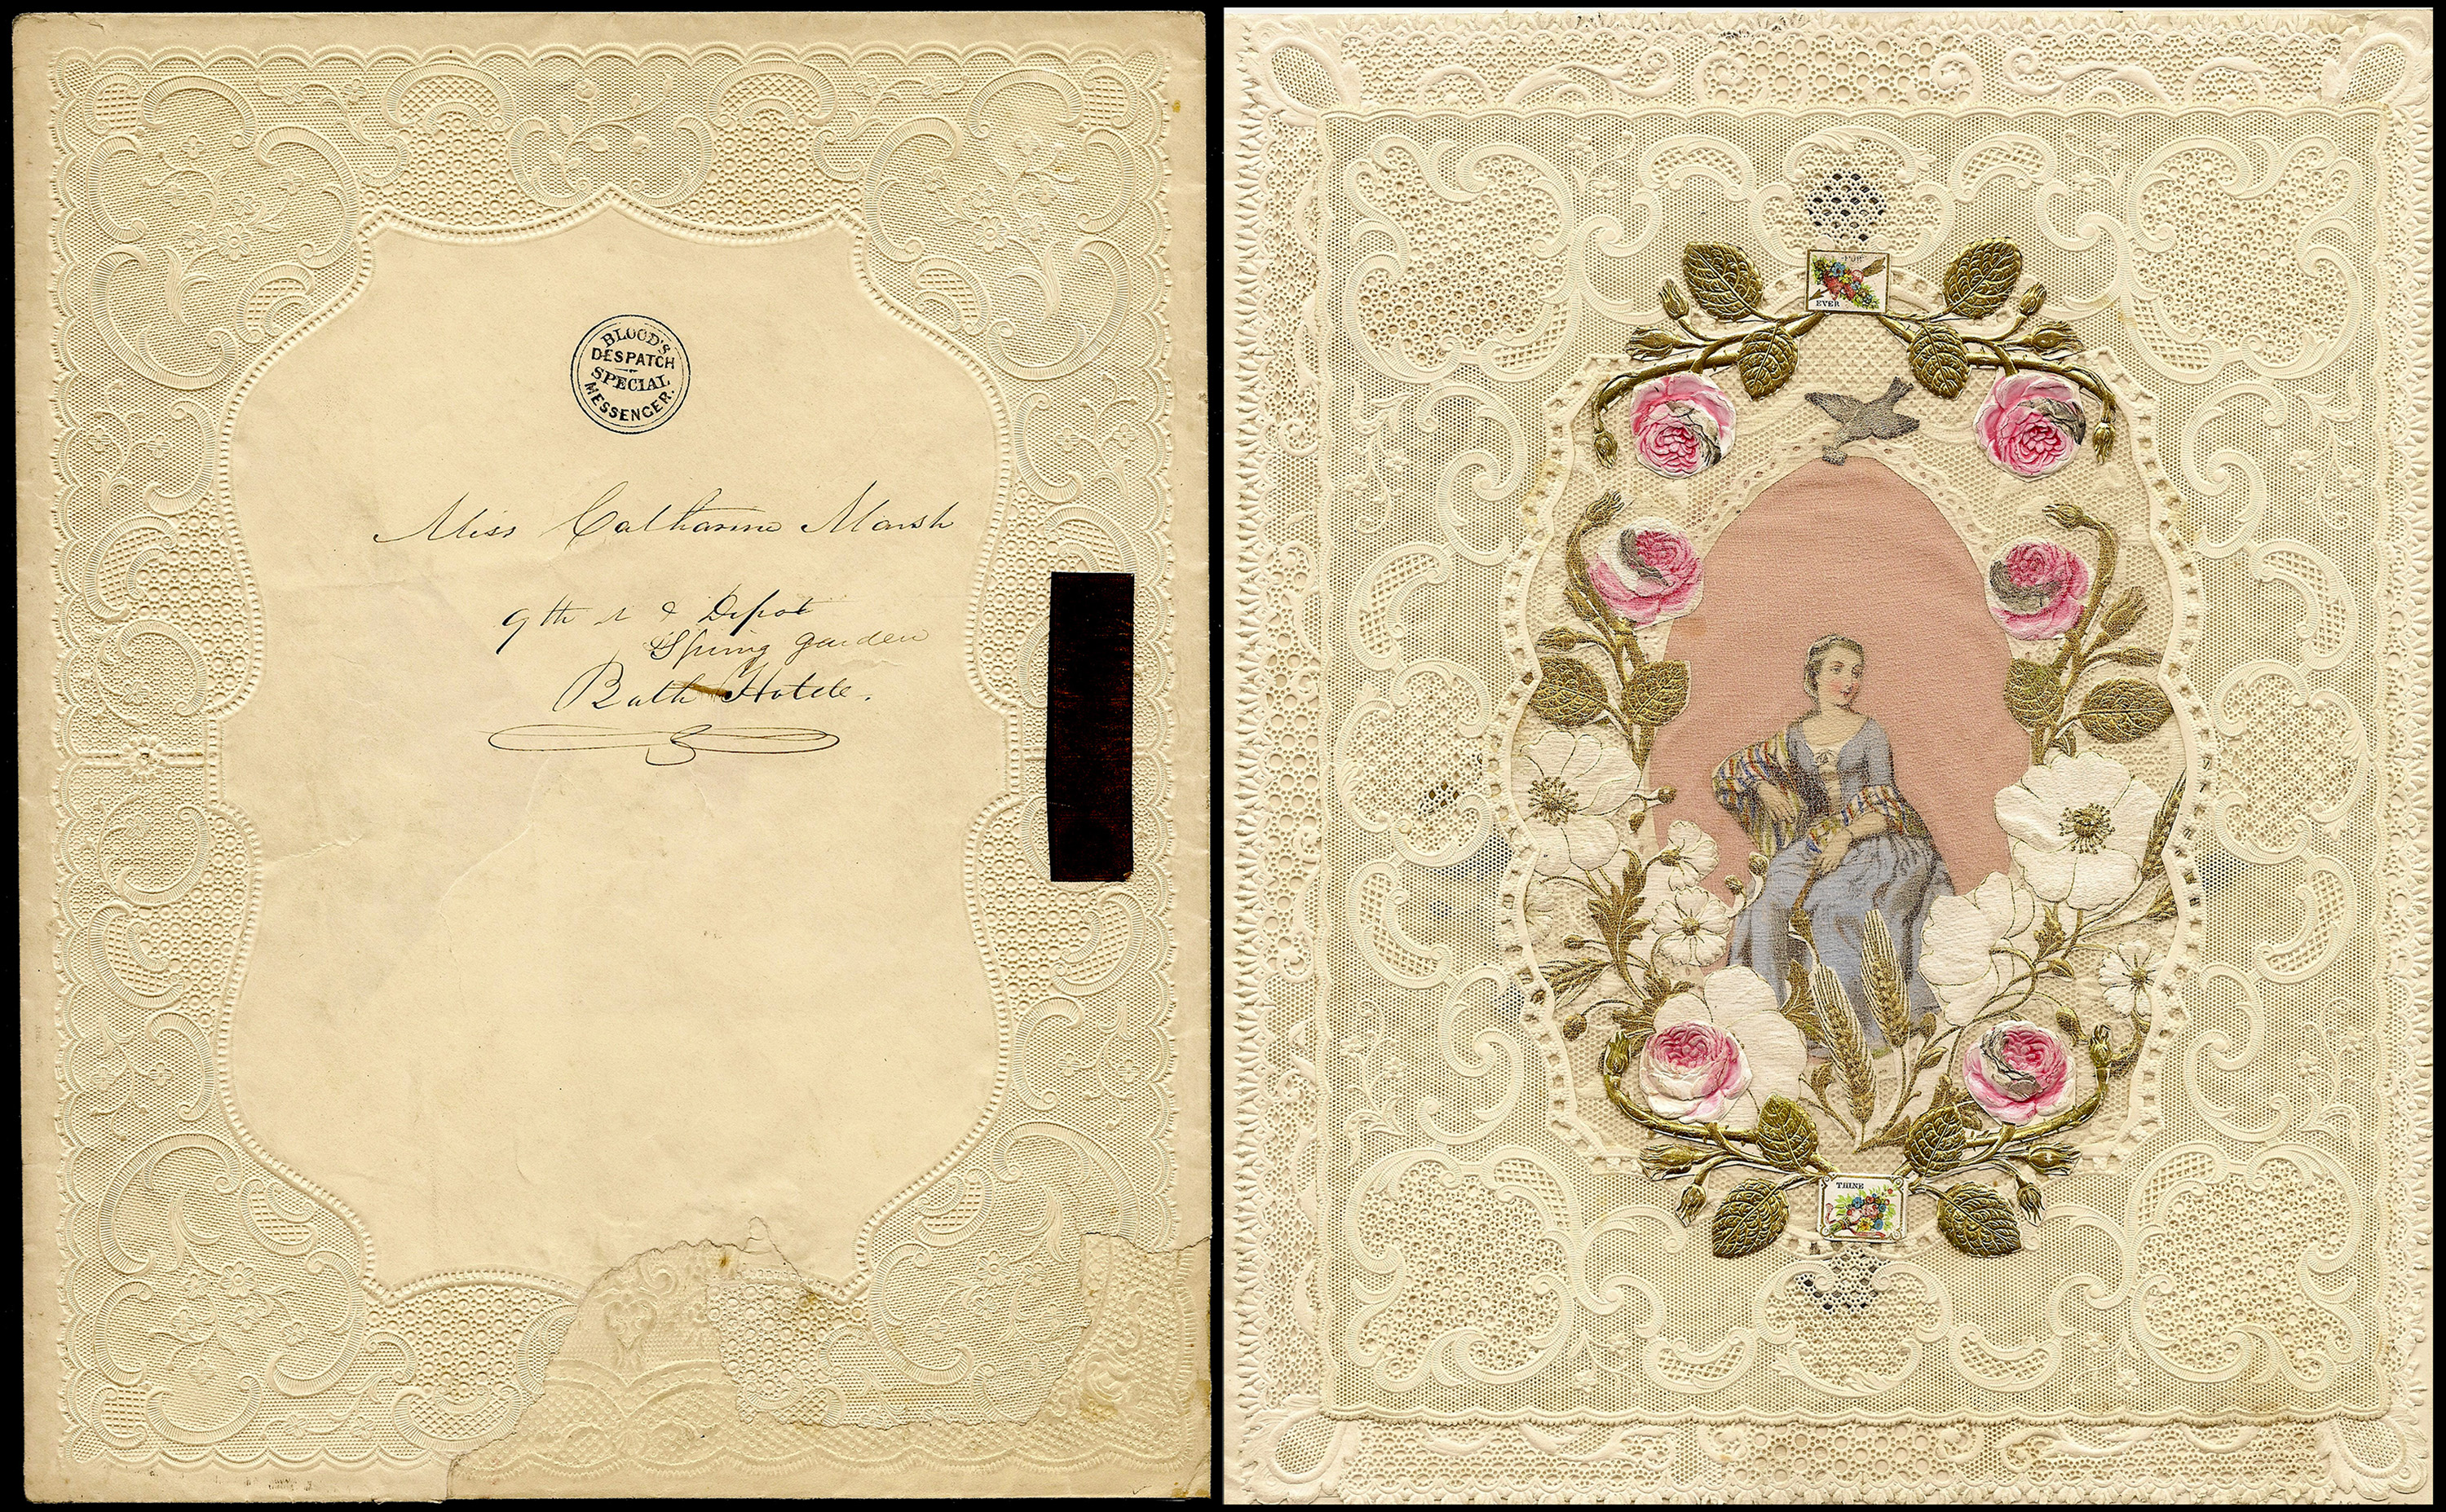 BLOOD'S
DESPATCH
SPECIAL
MESSENGER.
Miss Catharine Marsh
9th st & Depot
Spring garden
Bath Hotele.
FOR
EVER
THINE